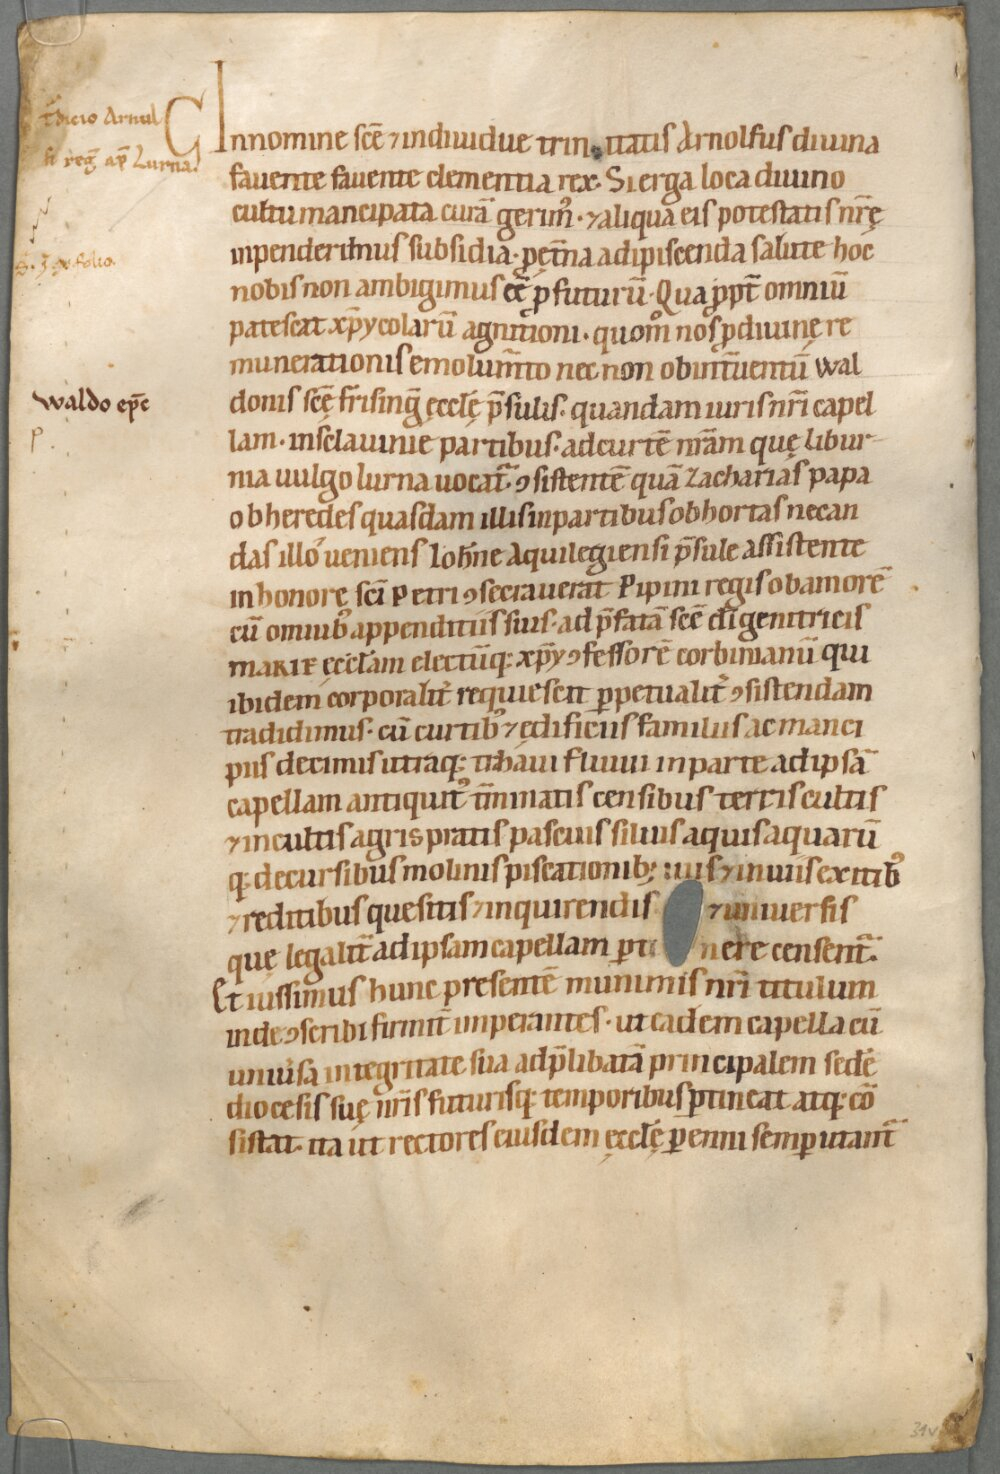 T̄dicio Arnul
fi reḡ ap̄ Lurna.
C
In nomine sc̄e ⁊ indiuidue trinitatis Arnolfus diuina
fauente fauente clementia rex. Si erga loca diuino
cultui mancipata curā gerim᾽. ⁊ aliqua eis potestatis nr̄ę
inpenderimus subsidia. ꝑęt̄na adipiscenda salute hoc
nobis non ambigimus eē̄ ꝓfuturū. Qua ꝓpt̄ omniū
patescat xp̄ycolarū agnitioni. quom̊ nos ꝓ diuinę re
munerationis emolum̄to nec non ob int̄uentū Wal
donis sc̄ę frisinḡ ęcclę̄ p̄sulis. quandam iuris nr̄i capel
lam. in sclauinie partibus. ad curtē nr̄am quę libur-
nia uulgo lurna uocat᷑. ꝯsistentē quā Zacharias papa
ob heredes quasdam illis in partibus obhortas necan
das illo᾽ ueniens Ioh̄ne Aquilegiensi p̄sule assistente
in honore sc̄i Petri ꝯsecrauerat Pipini regis ob amorē
cū omnib᾽ appenditiis suis. ad p̄fatā sc̄e d̄i genitricis
MARIE ęcc̄lam electūq; xp̄y ꝯfessorē corbinianū qui
ibidem corporalit᾽ requiescit ꝑpetualit᾽ ꝯsistendam
tradidimus. cū curtib᾽ ⁊ ędificiis familiis ac manci
piis decimis utraq; trhaui fluuii in parte ad ipsā
capellam antiquit᾽ t̄minatis censibus terris cultis
⁊ incultis agris pratis pascuis siluis aquis aquarū
q; decursibus molinis piscationib; uiis ⁊ inuiis exitib᾽
⁊ reditibus quesitis ⁊ inquirendis ⁊ uniuersis
quę legalit̄ ad ipsam capellam ꝑtinere censent᷑.
Et iussimus hunc presentē muniminis nr̄i titulum
inde ꝯscribi firmit̄ imperantes. ut eadem capella cū
uniu᾽sa integritate sua ad p̄libatā principalem sedē
diocesis suę nr̄is futurisq; temporibus ꝑtineat atq; cō
sistat. ita ut rectores eiusdem ęcclę̄ ꝑenni semꝑ utant᷑
Waldo ep̄c
p.
31v